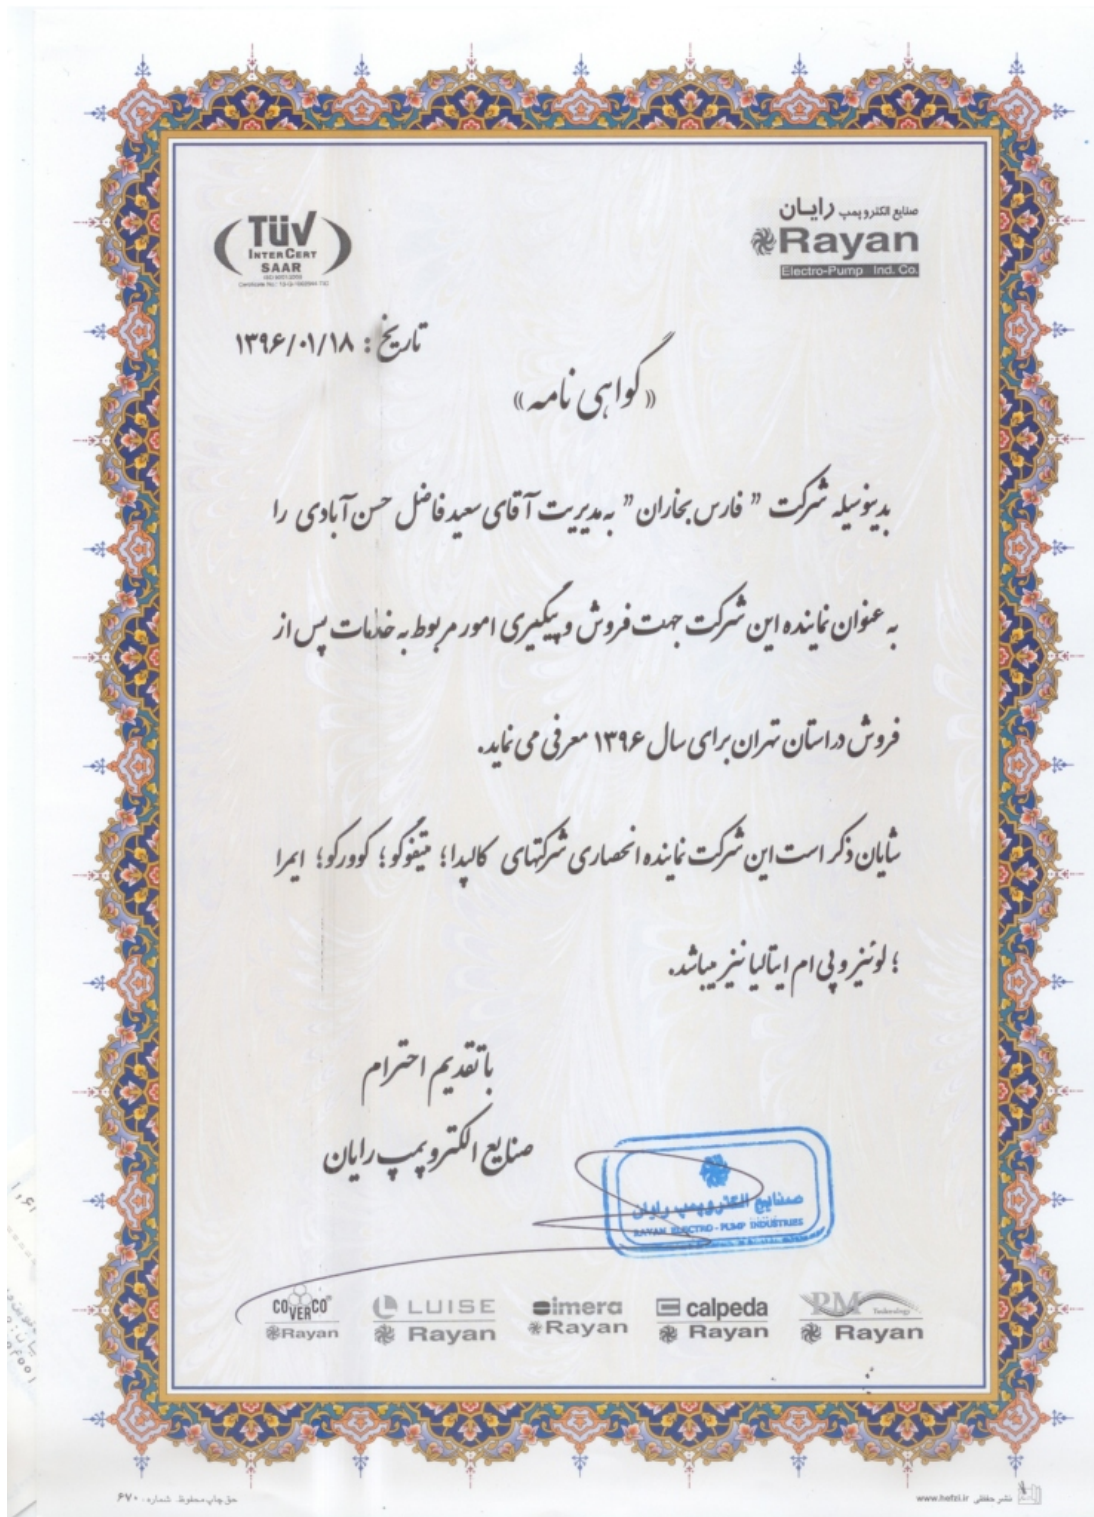 صنایع الکتروپمپ رایان
Rayan
Electro-Pump Ind. Co.
TÜV
INTERCERT
SAAR
تاریخ : ۱۳۹۶/۰۱/۱۸
«گواهی نامه»
بدینوسیله شرکت " فارس بخاران " به مدیریت آقای سعید فاضل حسن آبادی را
به عنوان نماینده این شرکت جهت فروش و پیگیری امور مربوط به خدمات پس از
فروش در استان تهران برای سال ۱۳۹۶ معرفی می نماید.
شایان ذکر است این شرکت نماینده انحصاری شرکتهای کالپدا؛ میتفوگو؛ کوورکو؛ ایمرا
؛ لوئیز و پی ام ایتالیا نیز میباشد.
با تقدیم احترام
صنایع الکتروپمپ رایان
صنایع الکتروپمپ رایان
RAYAN ELECTRO - PUMP INDUSTRIES
COVERCO
Rayan
LUISE
Rayan
imera
Rayan
calpeda
Rayan
PM Technology
Rayan
حق چاپ محفوظ. شماره: ۶۷۰
www.hefzi.ir نشر حفظی